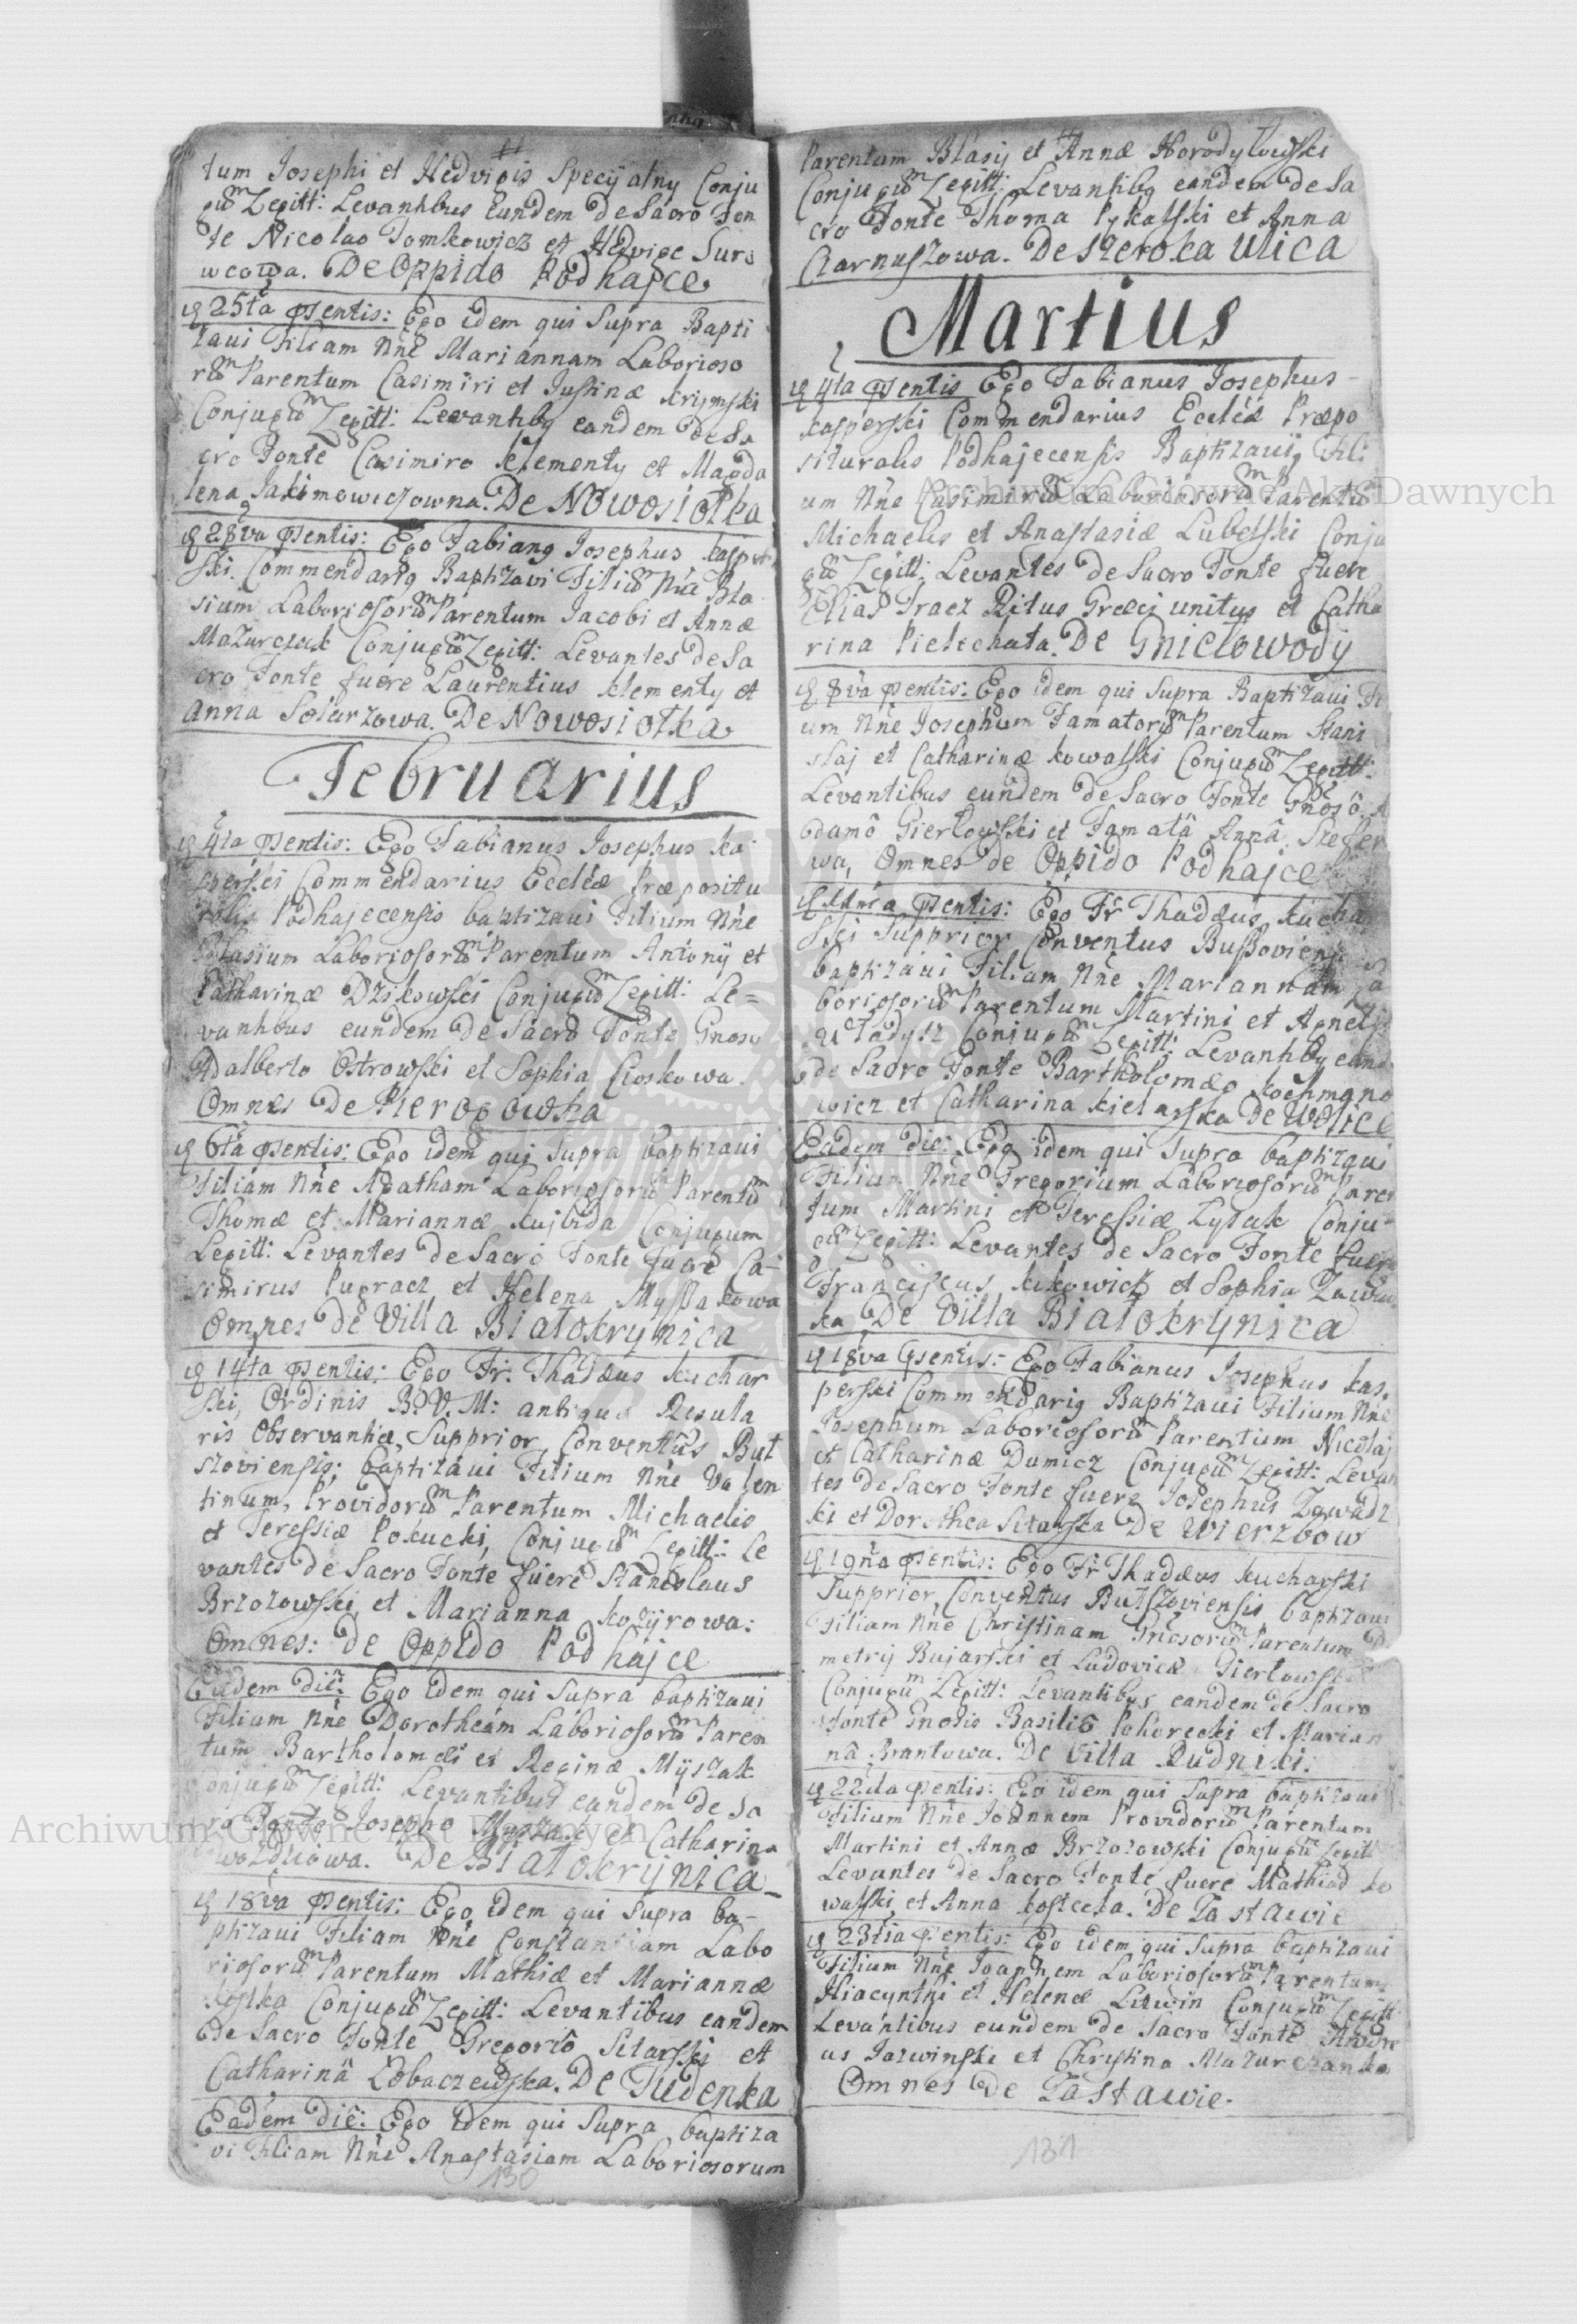 tum Josephi et Hedvigis Specyalny Conju
gũm Legitt: Levantibus Eundem de Sacro Fon
te Nicolao Tomkowicz et Hedvige Suro
wcowa. De Oppido Podhajce.
25ta psentis: Ego idem qui Supra Bapti
zaui Filiam Nñe Mariannam Laborioso
rũm Parentum Casimiri et Justinæ Krijmski
Conjugũm Legitt: Levantibq eandem de Sa
cro Fonte Casimiro Klementy et Magda
lena Jakimowiczowna. De Nowosiołka
28va psentis: Ego Fabianq Josephus Kasper
ski Commendariq Baptizavi Filiũm Nñe Bla
sium Laboriosorũm Parentum Jacobi et Annæ
Mazurczak Conjugũm Legitt: Levantes de Sa
cro Fonte fuere Laurentius Klementy et
Anna Solarzowa. De Nowosiołka
Februarius
4ta psentis: Ego Fabianus Josephus Ka
sperski Commendarius Eccleæ Præpositu
ralis Podhajecensis baptizaui Filium Nñe
Blasium Laboriosorũm Parentum Antonij et
Catharinæ Dzikowski Conjugũm Legitt: Le=
vantibus eundem de Sacro Fonte Gnoso
Adalberto Ostrowski et Sophia Cioskowa.
Omnes De Sierogowka
6ta psentis: Ego idem qui Supra baptizaui
Filiam Nñe Agatham Laboriosorũm Parentũm
Thomæ et Mariannæ Kujbida Conjugum
Legitt: Levantes de Sacro Fonte fuere Ca-
simirus Pugracz et Helena Myssakowa
Omnes de Villa Białokrynica
14ta psentis: Ego Fr: Thadæus Kuchar
ski, Ordinis B. V. M: antiquæ Regula
ris Observantiæ, Supprior, Conventûs But
szoviensis; baptizaui Filium Nñe Valen
tinum, Providorũm Parentum Michaelis
et Teressiæ Pokucki, Conjugũm Legitt: Le
vantes de Sacro Fonte fuere Stanislaus
Brzozowski, et Marianna Kozyrowa:
Omnes: de Oppido Podhajce
Eadem die: Ego idem qui Supra baptizaui
Filiam Nñe Dorotheam Laboriosorũm Paren
tum Bartholomæi et Reginæ Mijszak
Conjugũm Legitt: Levantibus eandem de Sa
cro Fonte Josepho Myszak et Catharina
Wozniowa. De Białokrijnica
18va psentis: Ego idem qui Supra ba-
ptizaui Filiam Nñe Constantiam Labo
riosorũm Parentum Mathiæ et Mariannæ
Kostka Conjugũm Legitt: Levantibus eandem
de Sacro Fonte Gregoriô Sitarski et
Catharinâ Łobaczewska. De Tudenka
Eadem die: Ego idem qui Supra baptiza
vi Filiam Nñe Anastasiam Laboriosorum
130
Parentum Blasij et Annæ Horodyłowski
Conjugũm Legitt: Levantibq eandem de Sa
cro Fonte Thoma Pykalski et Anna
Czarnuszowa. De Szeroka Ulica
Martius
4ta psentis Ego Fabianus Josephus
Kasperski Commendarius Eccleæ Præpo
situralis Podhajecensis Baptizauij Fili
um Nñe Casimirũ Laboriosorũm Parentũ
Michaelis et Anastasiæ Lubelski Conju
gũ Legitt: Levantes de Sacro Fonte fuere
Elias Tracz Ritus Græci unitus et Catha
rina Pielichata. De Gniełowody
8va psentis: Ego idem qui Supra Baptizaui Fi
um Nñe Josephum Famatorũm Parentum Stani
slaj et Catharinæ Kowalski Conjugũm Legitt:
Levantibus eundem de Sacro Fonte Gñosô A
damô Gierłowski et Famatâ Annâ Stefen
wa, Omnes de Oppido Podhajce
psentis: Ego Fr Thadæus Kuchar
ski Supprior Conventus Bussoviensis
baptizaui Filiam Nñe Mariannam La
boriosorũm Parentum Martini et Agnetis
Conjugũm Legitt: Levantibq eand
de Sacro Fonte Bartholomæo Kochmano
wicz et Catharina Kielarska De Wolice
Eadem die: Ego idem qui Supra baptizaui
Filium Nñe Gregorium Laboriosorũm Paren
tum Martini et Teressiæ Zyłak Conju-
gũm Legitt: Levantes de Sacro Fonte fuere
Franciscus Kikowicz et Sophia Zawadz
ka De Villa Białokrynica
18va psentis: Ego Fabianus Josephus Kas.
perski Commendariq Baptizaui Filium Nñe
Josephum Laboriosorũm Parentum Nicolaj
et Catharinæ Dumicz Conjugũm Legitt: Levan
tes de Sacro Fonte fuere Josephus Zawadz
ki et Dorothea Sitarska De Wierzbow
19na psentis: Ego Fr Thadæus Kucharski
Supprior, Conventus Butszoviensis baptizaui
Filiam Nñe Christinam Gñosorũm Parentum D
metrij Bujarski et Ludovicæ Gierłowska
Conjugũm Legitt: Levantibus eandem de Sacro
Fonte Gnosis Basiliô Pohorecki et Marian
nâ Brantowa. De Villa Rudniki:
22da psentis: Ego idem qui Supra baptizaui
Filium Nñe Joannem Providorũm Parentum
Martini et Annæ Brzozowski Conjugũm Legitt
Levantes de Sacro Fonte fuere Mathias Ko
walski et Anna Kostecka. De Zastawie
23tia psentis: Ego idem qui Supra baptizaui
Filium Nñe Joaphem Laboriosorũm Parentum
Hiacynthi et Helenæ Litwin Conjugũm Legitt
Levantibus eundem de Sacro Fonte Andre
as Jazwinski et Christina Mazurczanka
Omnes De Zastawie.
131
Archiwum Główne Akt Dawnych
Archiwum Główne Akt Dawnych